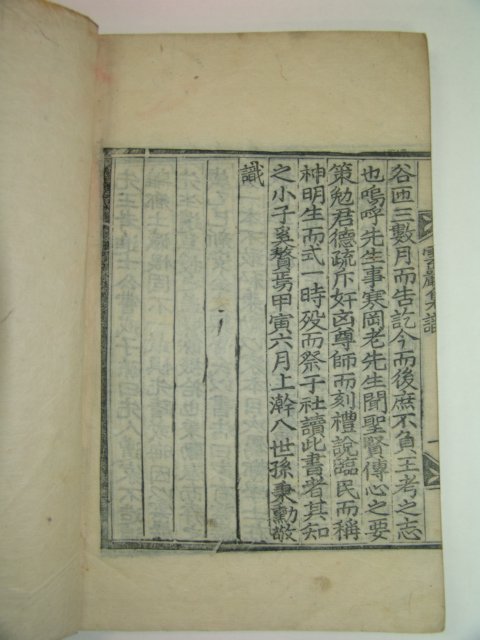 谷西三數月而告訖今而後庶不負王考之志
也嗚呼先生事寒岡老先生聞聖賢傳心之要
策勉君德疏斥奸凶尊師而刻禮說臨民而稱
神明生而式一時歿而祭于社讀此書者其知
之小子奚贅焉甲寅六月上澣八世孫秉勳敬
識